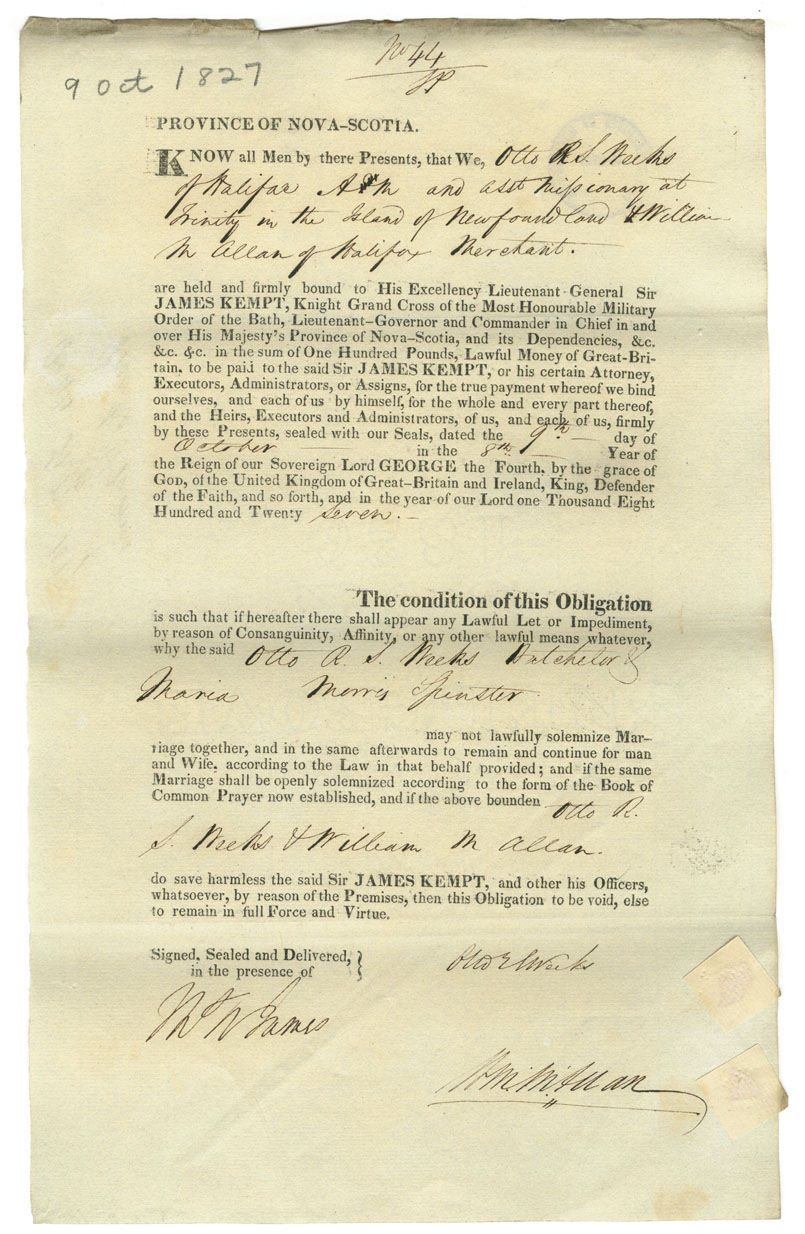 No 44
9 Oct 1827
PROVINCE OF NOVA-SCOTIA.
KNOW all Men by there Presents, that We, Otto R S. Weeks
of Halifax A M and asst Missionary at
Trinity in the Island of Newfoundland & William
M Allan of Halifax Merchant.
are held and firmly bound to His Excellency Lieutenant General Sir
JAMES KEMPT, Knight Grand Cross of the Most Honourable Military
Order of the Bath, Lieutenant-Governor and Commander in Chief in and
over His Majesty's Province of Nova-Scotia, and its Dependencies, &c.
&c. &c. in the sum of One Hundred Pounds, Lawful Money of Great-Bri-
tain, to be paid to the said Sir JAMES KEMPT, or his certain Attorney,
Executors, Administrators, or Assigns, for the true payment whereof we bind
ourselves, and each of us by himself, for the whole and every part thereof,
and the Heirs, Executors and Administrators, of us, and each of us, firmly
by these Presents, sealed with our Seals, dated the 9th day of
October in the 8th Year of
the Reign of our Sovereign Lord GEORGE the Fourth, by the grace of
GOD, of the United Kingdom of Great-Britain and Ireland, King, Defender
of the Faith, and so forth, and in the year of our Lord one Thousand Eight
Hundred and Twenty seven.
The condition of this Obligation
is such that if hereafter there shall appear any Lawful Let or Impediment,
by reason of Consanguinity, Affinity, or any other lawful means whatever,
why the said Otto R. S. Weeks Batchelor &
Maria Morris Spinster
may not lawfully solemnize Mar-
riage together, and in the same afterwards to remain and continue for man
and Wife, according to the Law in that behalf provided; and if the same
Marriage shall be openly solemnized according to the form of the Book of
Common Prayer now established, and if the above bounden Otto R.
S. Weeks & William M Allan.
do save harmless the said Sir JAMES KEMPT, and other his Officers,
whatsoever, by reason of the Premises, then this Obligation to be void, else
to remain in full Force and Virtue.
Signed, Sealed and Delivered,
in the presence of
Otto R S Weeks
James
Wm M Allan